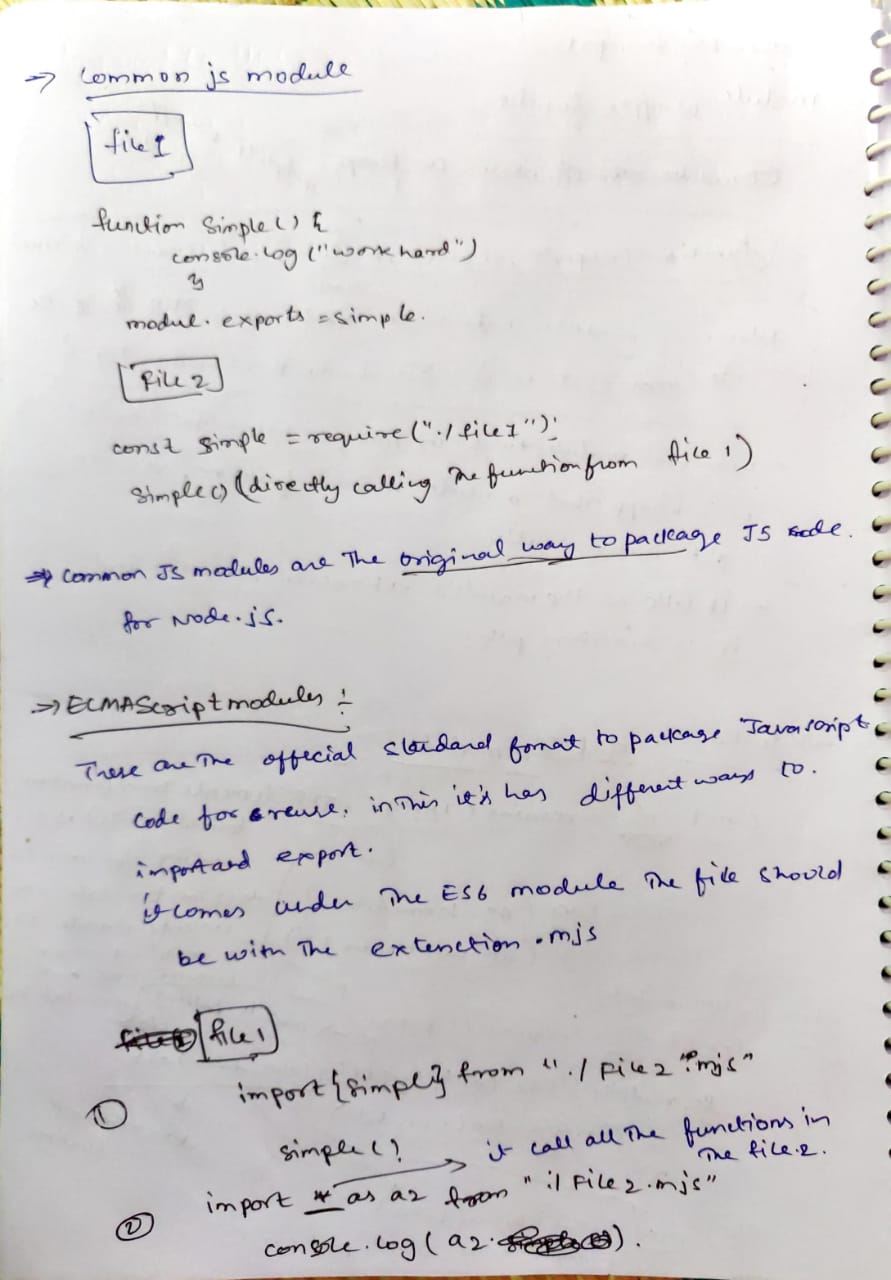 → Common js module
file 1
function Simple() {
console.log("work hard")
}
modul.exports = simple.
File 2
const simple = require("./file1");
Simple() (directly calling The function from file 1)
⇒ Common JS modules are The original way to package JS code.
for Node.js.
→ ECMAScript modules :-
These are The offecial standard fomat to package Javascript
code for reuse. in This it's has different ways to.
import and export.
it comes under The ES6 module The file should
be with The extenction .mjs
file 1
import {simple} from "./File2.mjs"
①
simple()
it call all The functions in
The file.2.
import * as a2 from "./File2.mjs"
②
console.log(a2. ).